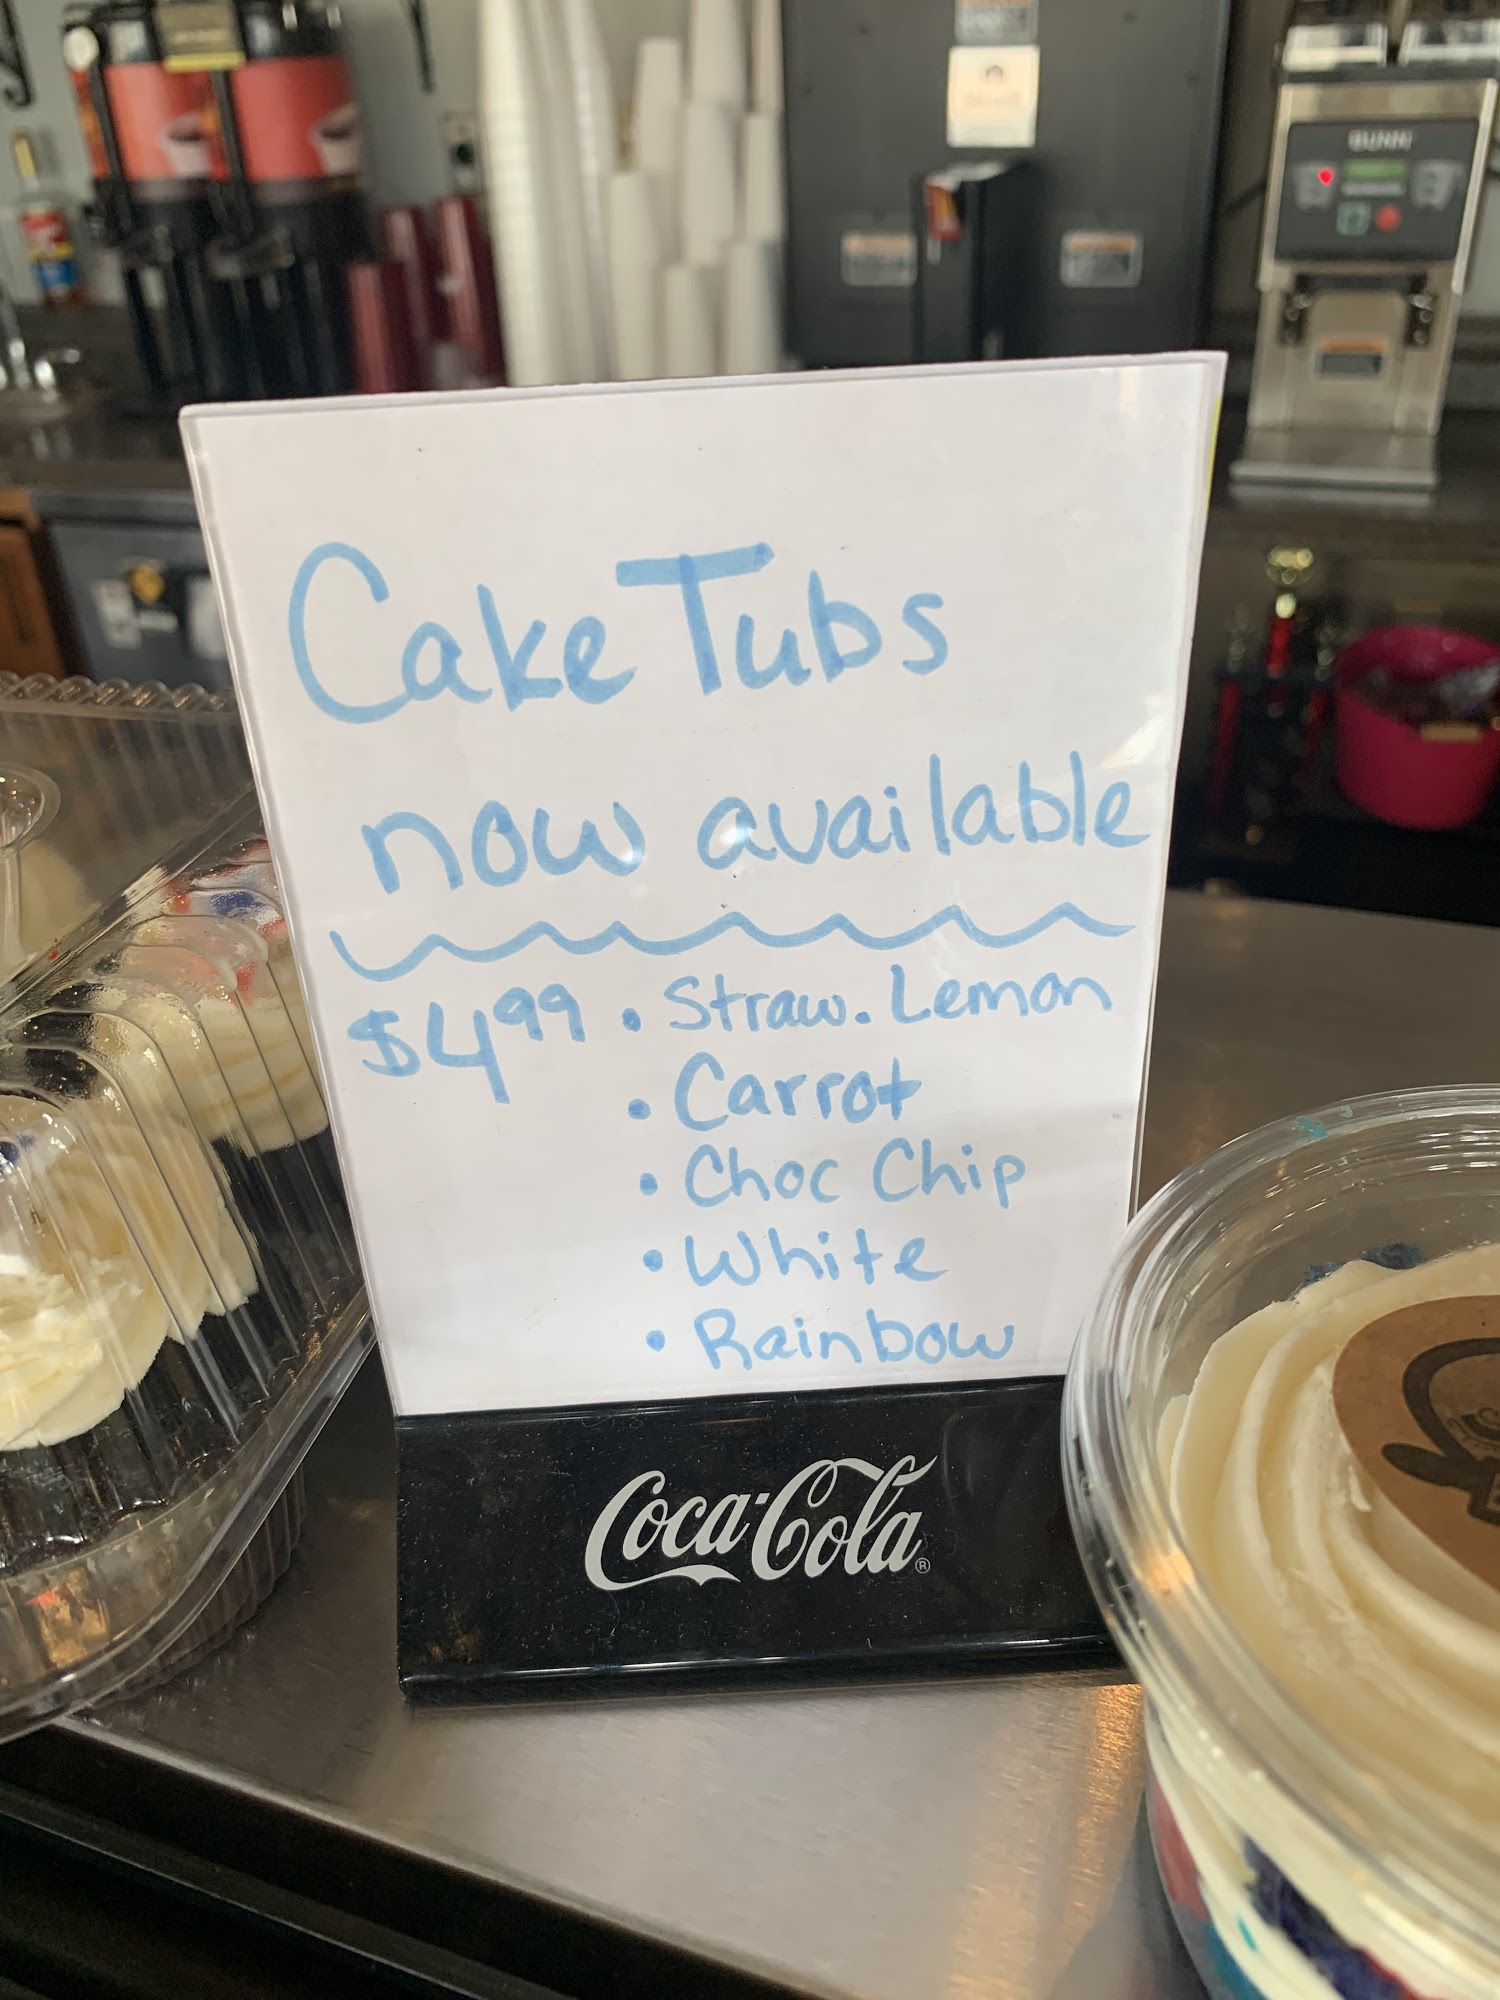 BUNN
Cake Tubs
now available
$4.99 • Straw. Lemon
• Carrot
• Choc Chip
• White
• Rainbow
Coca-Cola®